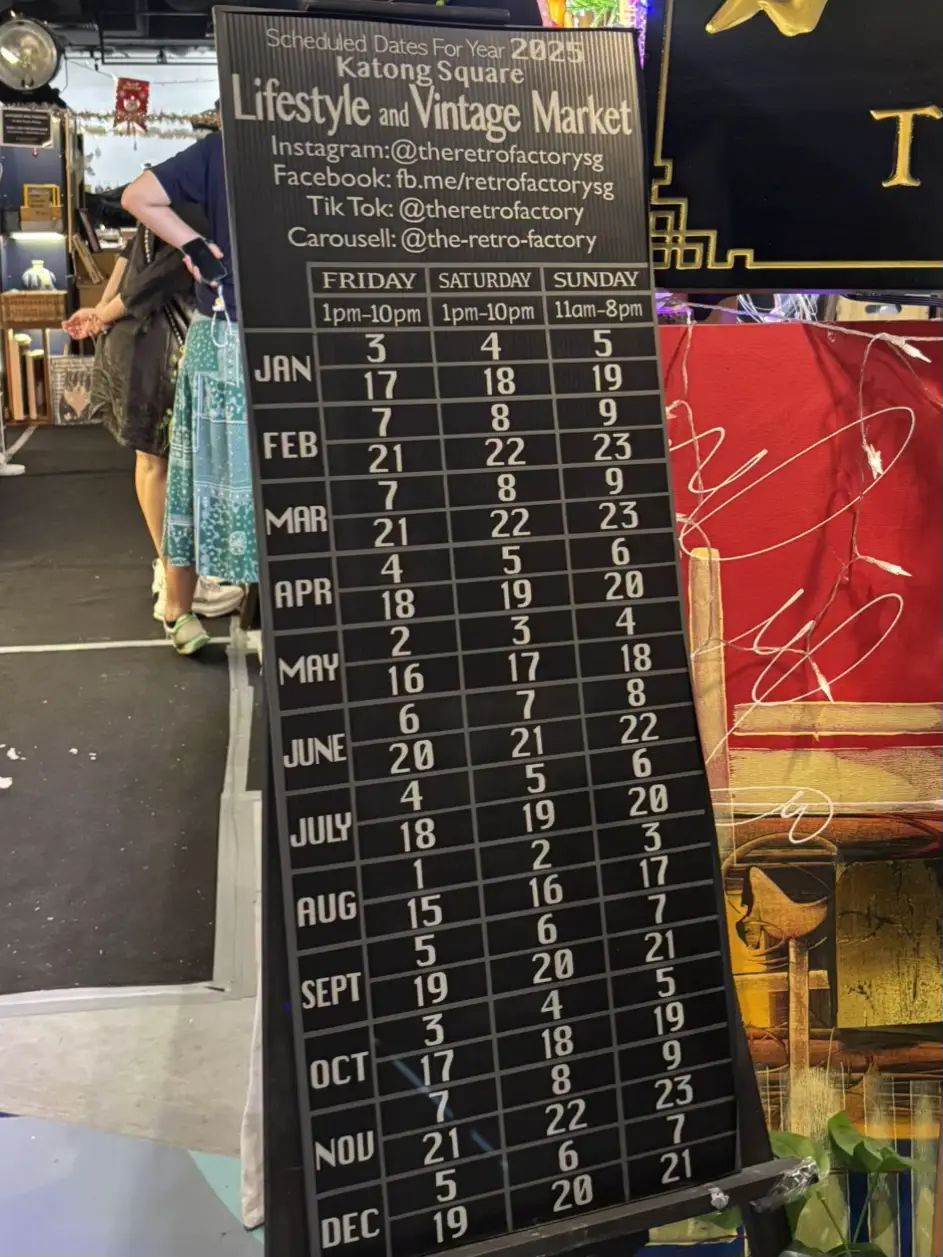 Scheduled Dates For Year 2025
Katong Square
Lifestyle and Vintage Market
Instagram:@theretrofactorysg
Facebook: fb.me/retrofactorysg
Tik Tok: @theretrofactory
Carousell: @the-retro-factory
FRIDAY SATURDAY SUNDAY
1pm-10pm 1pm-10pm 11am-8pm
JAN
3 4 5
17 18 19
FEB
7 8 9
21 22 23
MAR
7 8 9
21 22 23
APR
4 5 6
18 19 20
MAY
2 3 4
16 17 18
JUNE
6 7 8
20 21 22
JULY
4 5 6
18 19 20
AUG
1 2 3
15 16 17
SEPT
5 6 7
19 20 21
OCT
3 4 5
17 18 19
NOV
7 8 9
21 22 23
DEC
5 6 7
19 20 21
T